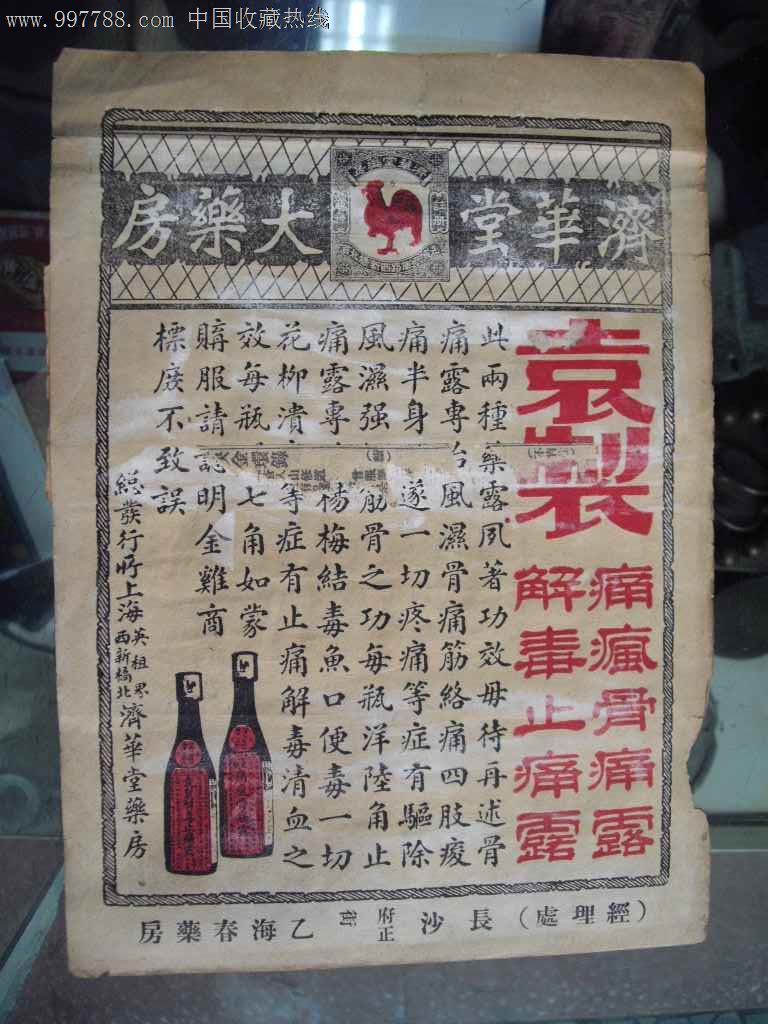 www.997788.com 中国收藏热线
濟華堂大藥房
袁製
痛瘋骨痛露
解毒止痛露
此兩種藥露夙著功效毋待再述骨
痛露專治風濕骨痛筋絡痛四肢痠
痛半身 遂一切疼痛等症有驅除
風濕强 筋骨之功每瓶洋陸角止
痛露專 楊梅結毒魚口便毒一切
花柳潰 等症有止痛解毒清血之
效每瓶 七角如蒙
購服請認明金雞商
標庶不致誤
總發行所上海英租界西新橋北濟華堂藥房
(經理處)長沙府正街乙海春藥房